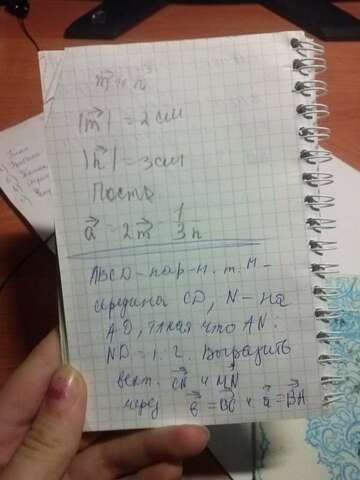 |m⃗| = 2 см
|n⃗| = 3 см
Пость
a⃗ = 2m⃗ - 1/3 n
ABCD - пар-м. т. М -
середина CD, N - на
AD, такая что AN:
ND = 1:2. Выразить
вект. CN и MN
через в⃗ = BC и a⃗ = BA